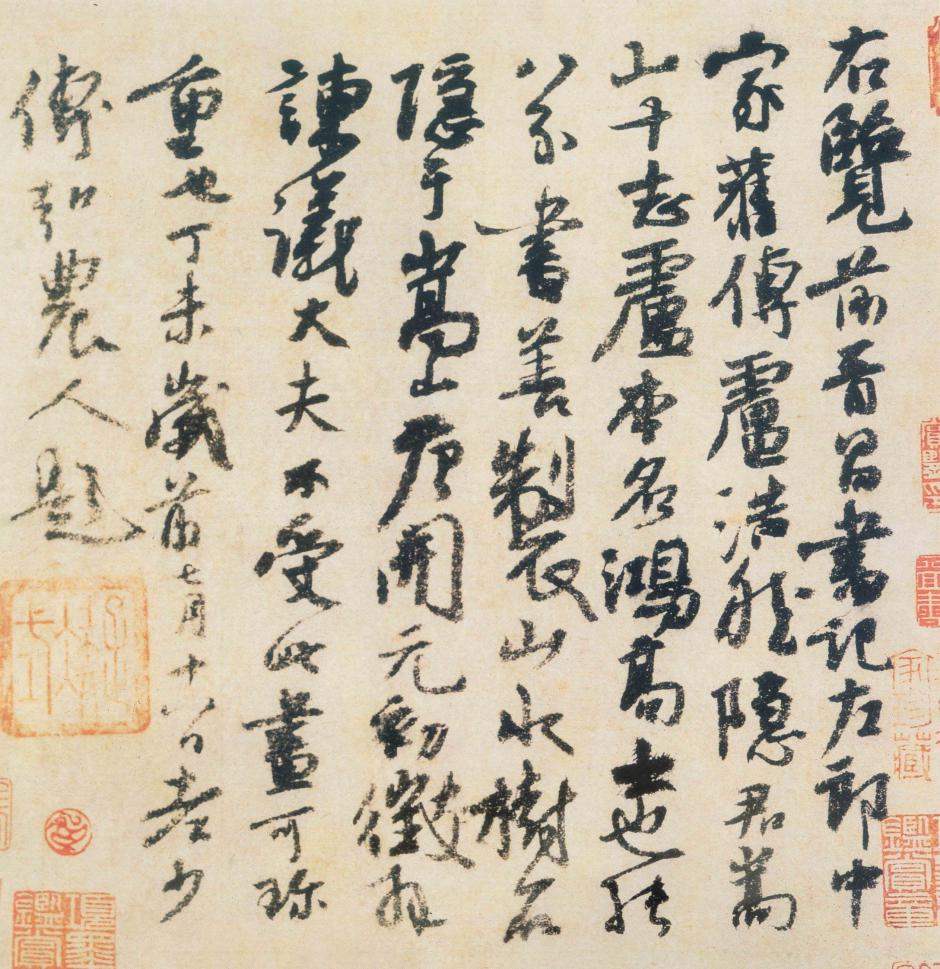 右覽前晉昌書記左郎中
家舊傳盧浩然隱君嵩
山十志盧本名鴻高士也能
八分書善製山水樹石
隱于嵩山唐開元初徵拜
諫議大夫不受此畫可珎
重也丁未歲前七月十八日老少
傅弘農人題